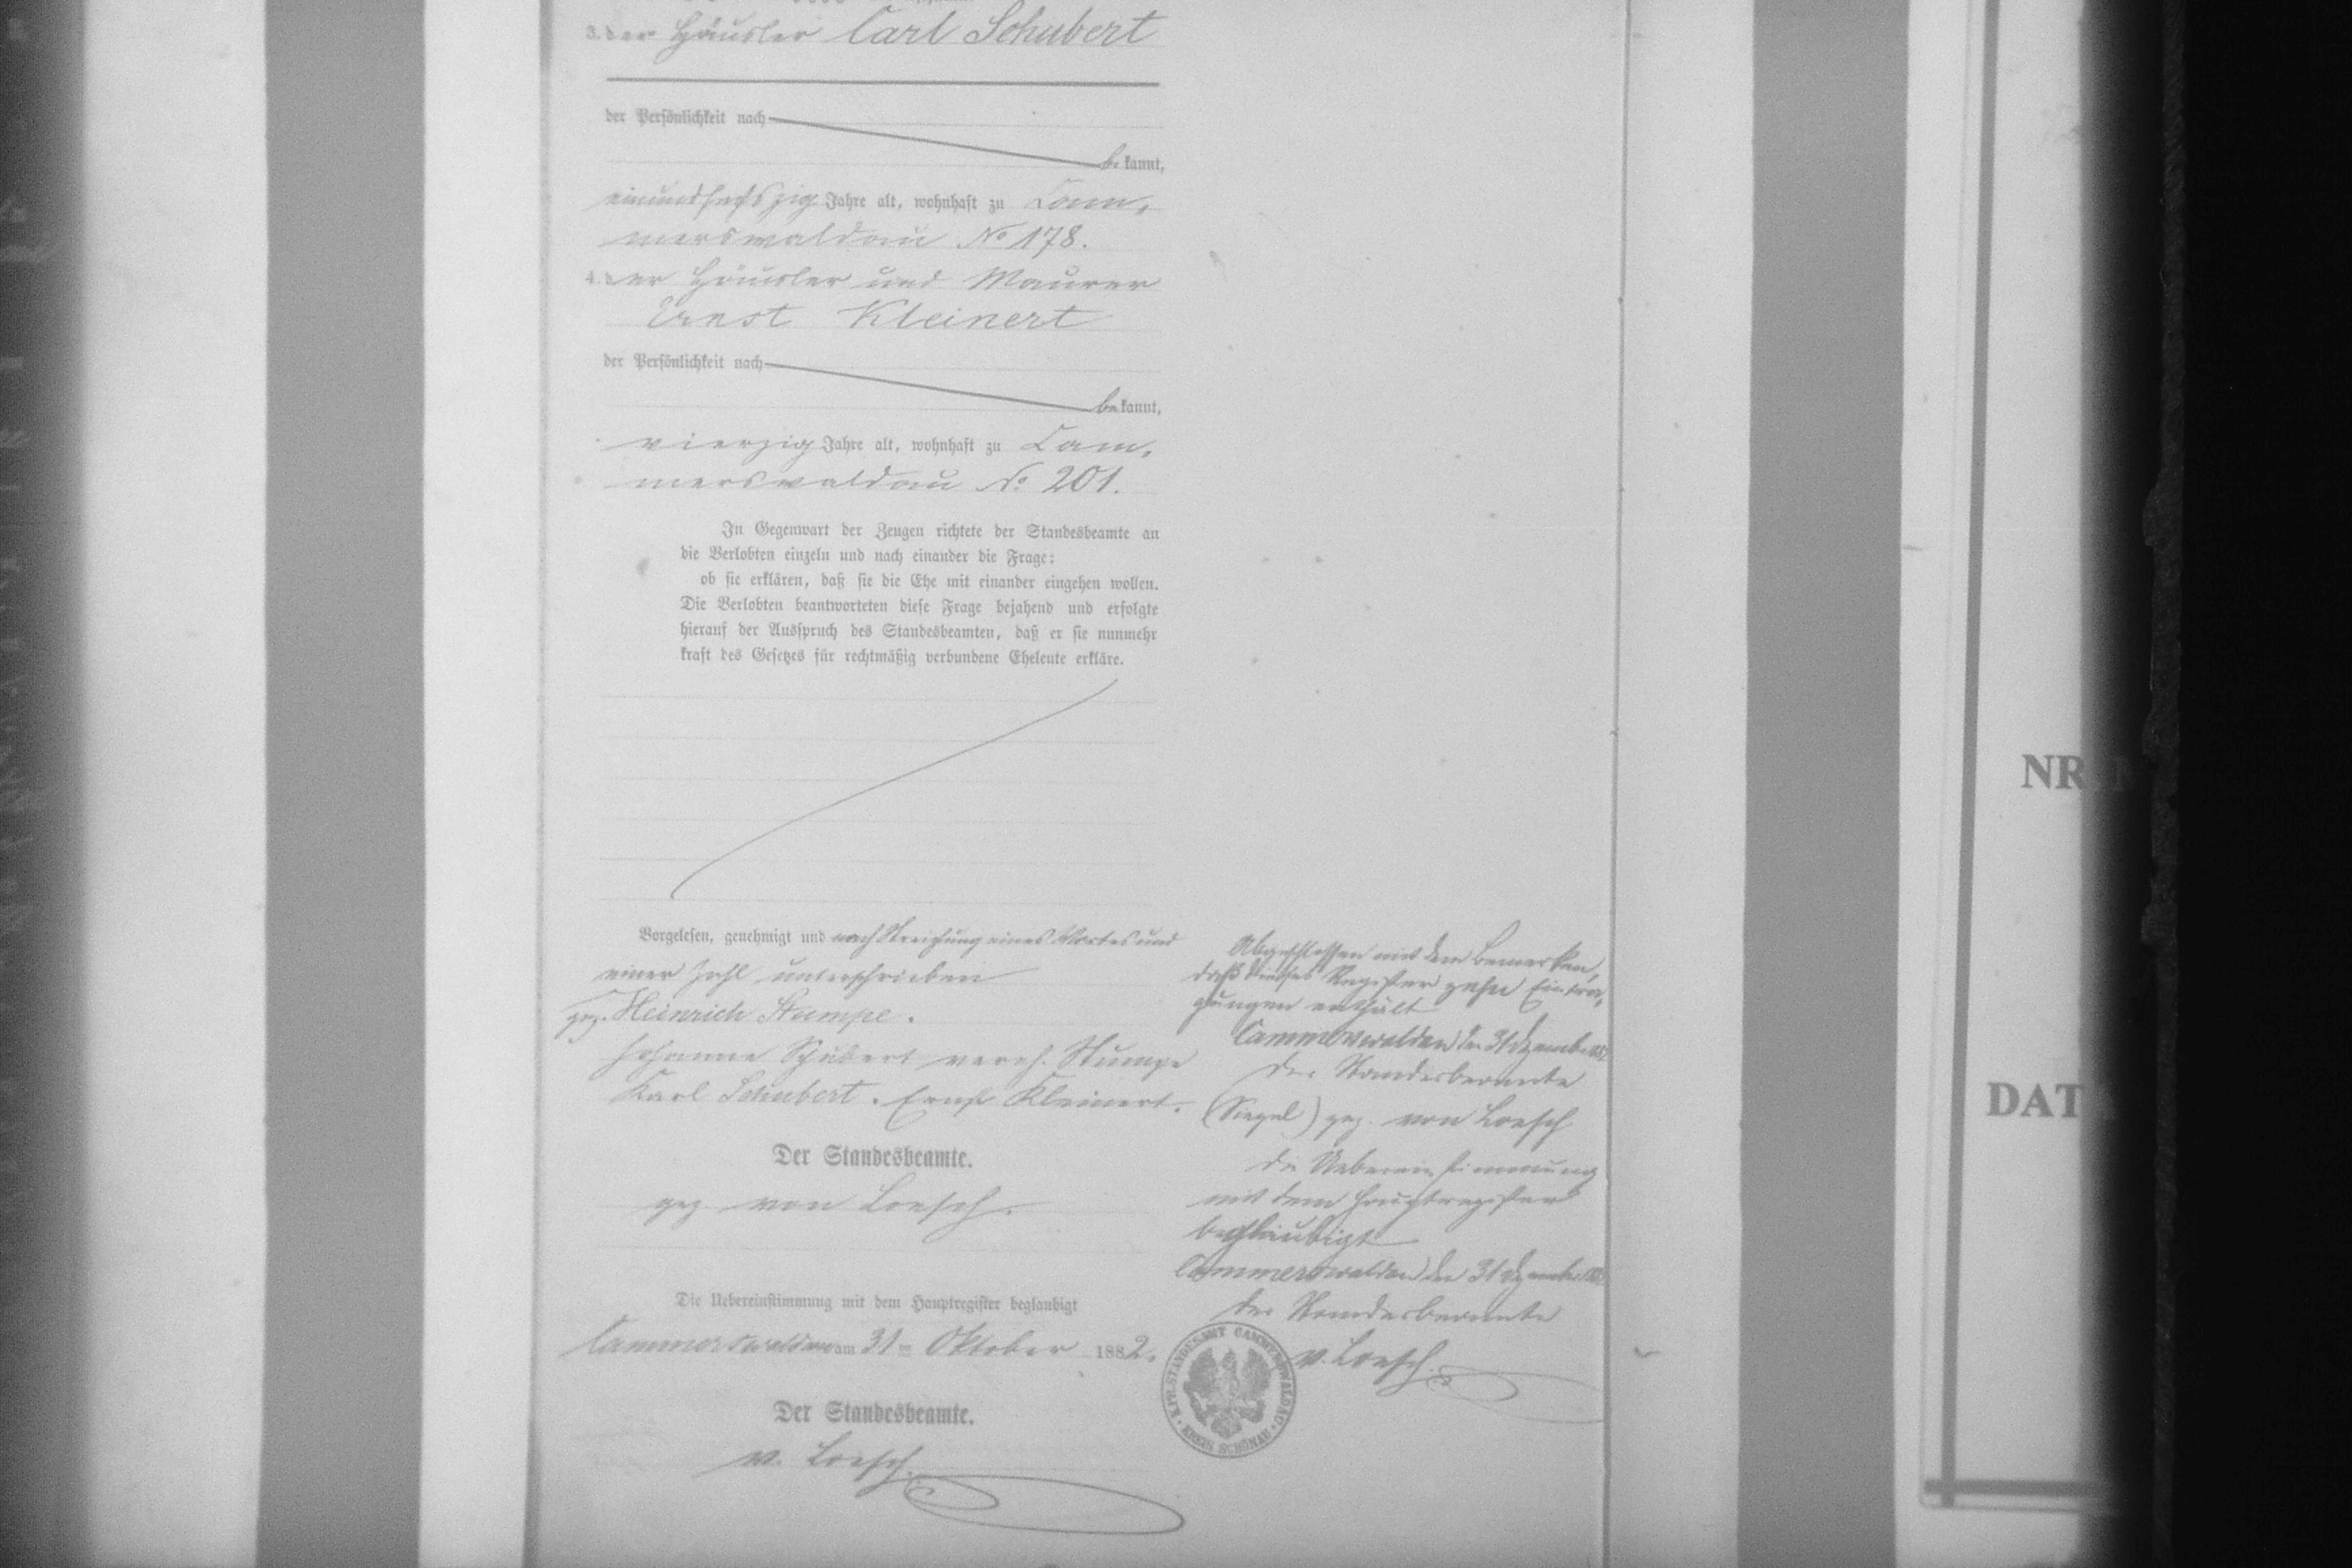 3. der Häusler Carl Schubert
der Persönlichkeit nach
be kannt,
einundsechszig Jahre alt, wohnhaft zu Cam,
merswaldau No 178.
4. der Häusler und Maurer
Ernst Kleinert
der Persönlichkeit nach
be kannt,
vierzig Jahre alt, wohnhaft zu Cam,
merswaldau No 201.
In Gegenwart der Zeugen richtete der Standesbeamte an
die Verlobten einzeln und nach einander die Frage:
ob sie erklären, daß sie die Ehe mit einander eingehen wollen.
Die Verlobten beantworteten diese Frage bejahend und erfolgte
hierauf der Ausspruch des Standesbeamten, daß er sie nunmehr
kraft des Gesetzes für rechtmäßig verbundene Eheleute erkläre.
Vorgelesen, genehmigt und nach Streichung eines Wortes und
einer Zahl unterschrieben
gez. Heinrich Stumpe.
Johanne Schubert vereh. Stumpe
Karl Schubert. Ernst Kleinert.
Der Standesbeamte.
gez von Loesch.
Die Uebereinstimmung mit dem Hauptregister beglaubigt
Cammerswaldau am 31 ten Oktober 1882.
Der Standesbeamte.
v. Loesch.
Abgeschlossen mit dem Bemerken,
daß dieses Register zehn Eintra,
gungen enthält
Cammerswaldau den 31 Dezember 1882
Der Standesbeamte
(Siegel) gez. von Loesch
Die Uebereinstimmung
mit dem Hauptregister
beglaubigt
Cammerswaldau den 31 Dezember 1882
Der Standesbeamte
v. Loesch.
K. PR. STANDESAMT CAMMERSWALDAU
KREIS SCHÖNAU
NR
DAT